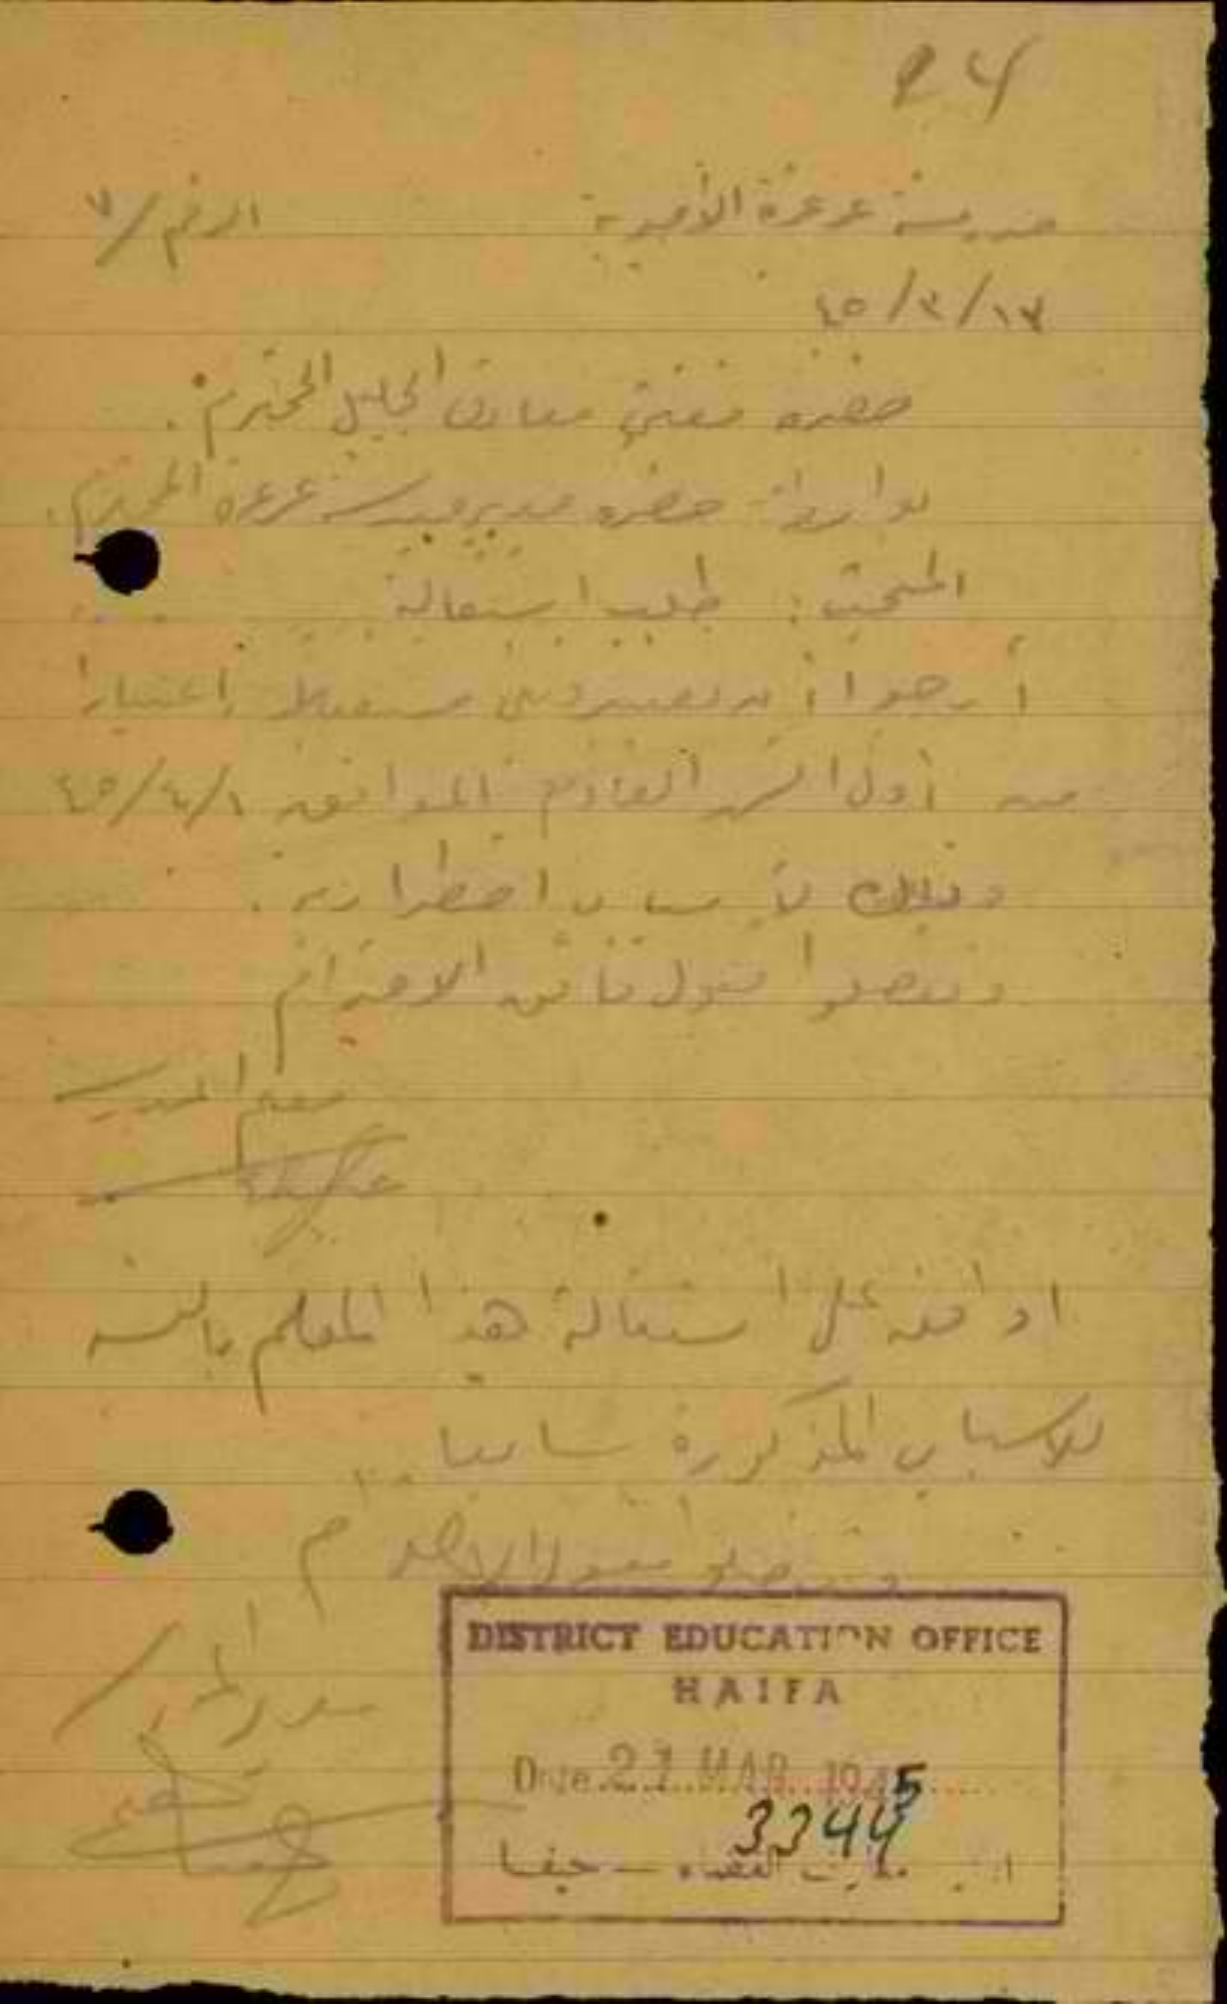 24
مدرسة عرعرة الأميرية الرقم / ٧
١٣ / ٣ / ٤٥
حضرة مفتش معارف الجليل المحترم.
بواسطة حضرة مدير مدرسة عرعرة المحترم.
المبحث : طلب استقالة
أرجوا أن تعتبروني مستقيلا إعتبارا
من أول الشهر القادم الموافق ١ / ٤ / ٤٥
وذلك لأسباب اضطرارية.
وتفضلوا قبول فائق الاحترام
معلم المدرسة
اوافق على استقالة هذا المعلم
للاسباب المذكورة سابقا
وتفضلو بقبول الاحترام
مدير المدرسة
DISTRICT EDUCATION OFFICE
HAIFA
Date 27 MAR 1945
3344
معارف القضاء — حيفا